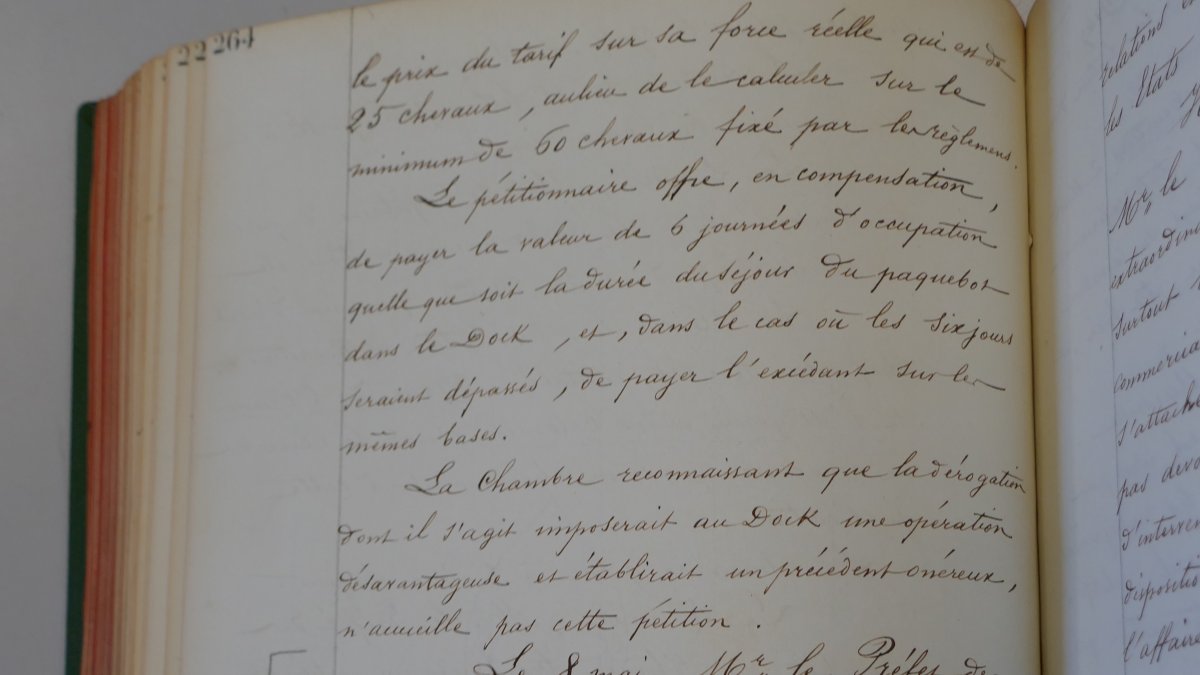 22 264
le prix du tarif sur sa force réelle qui est de
25 chevaux, aulieu de le calculer sur le
minimum de 60 chevaux fixé par les règlemens.
Le pétitionnaire offre, en compensation,
de payer la valeur de 6 journées d'occupation
quelle que soit la durée du séjour du paquebot
dans le Dock, et, dans le cas où les six jours
seraient dépassés, de payer l'excédant sur les
mêmes bases.
La Chambre reconnaissant que la dérogation
dont il s'agit imposerait au Dock une opération
désavantageuse et établirait un précédent onéreux,
n'accueille pas cette pétition.
Le 8 mai, Mr le Préfet de
relations
les Etats
Mr le
extraordin
surtout
commercia
s'attache
pas devo
d'interven
dispositio
l'affaire